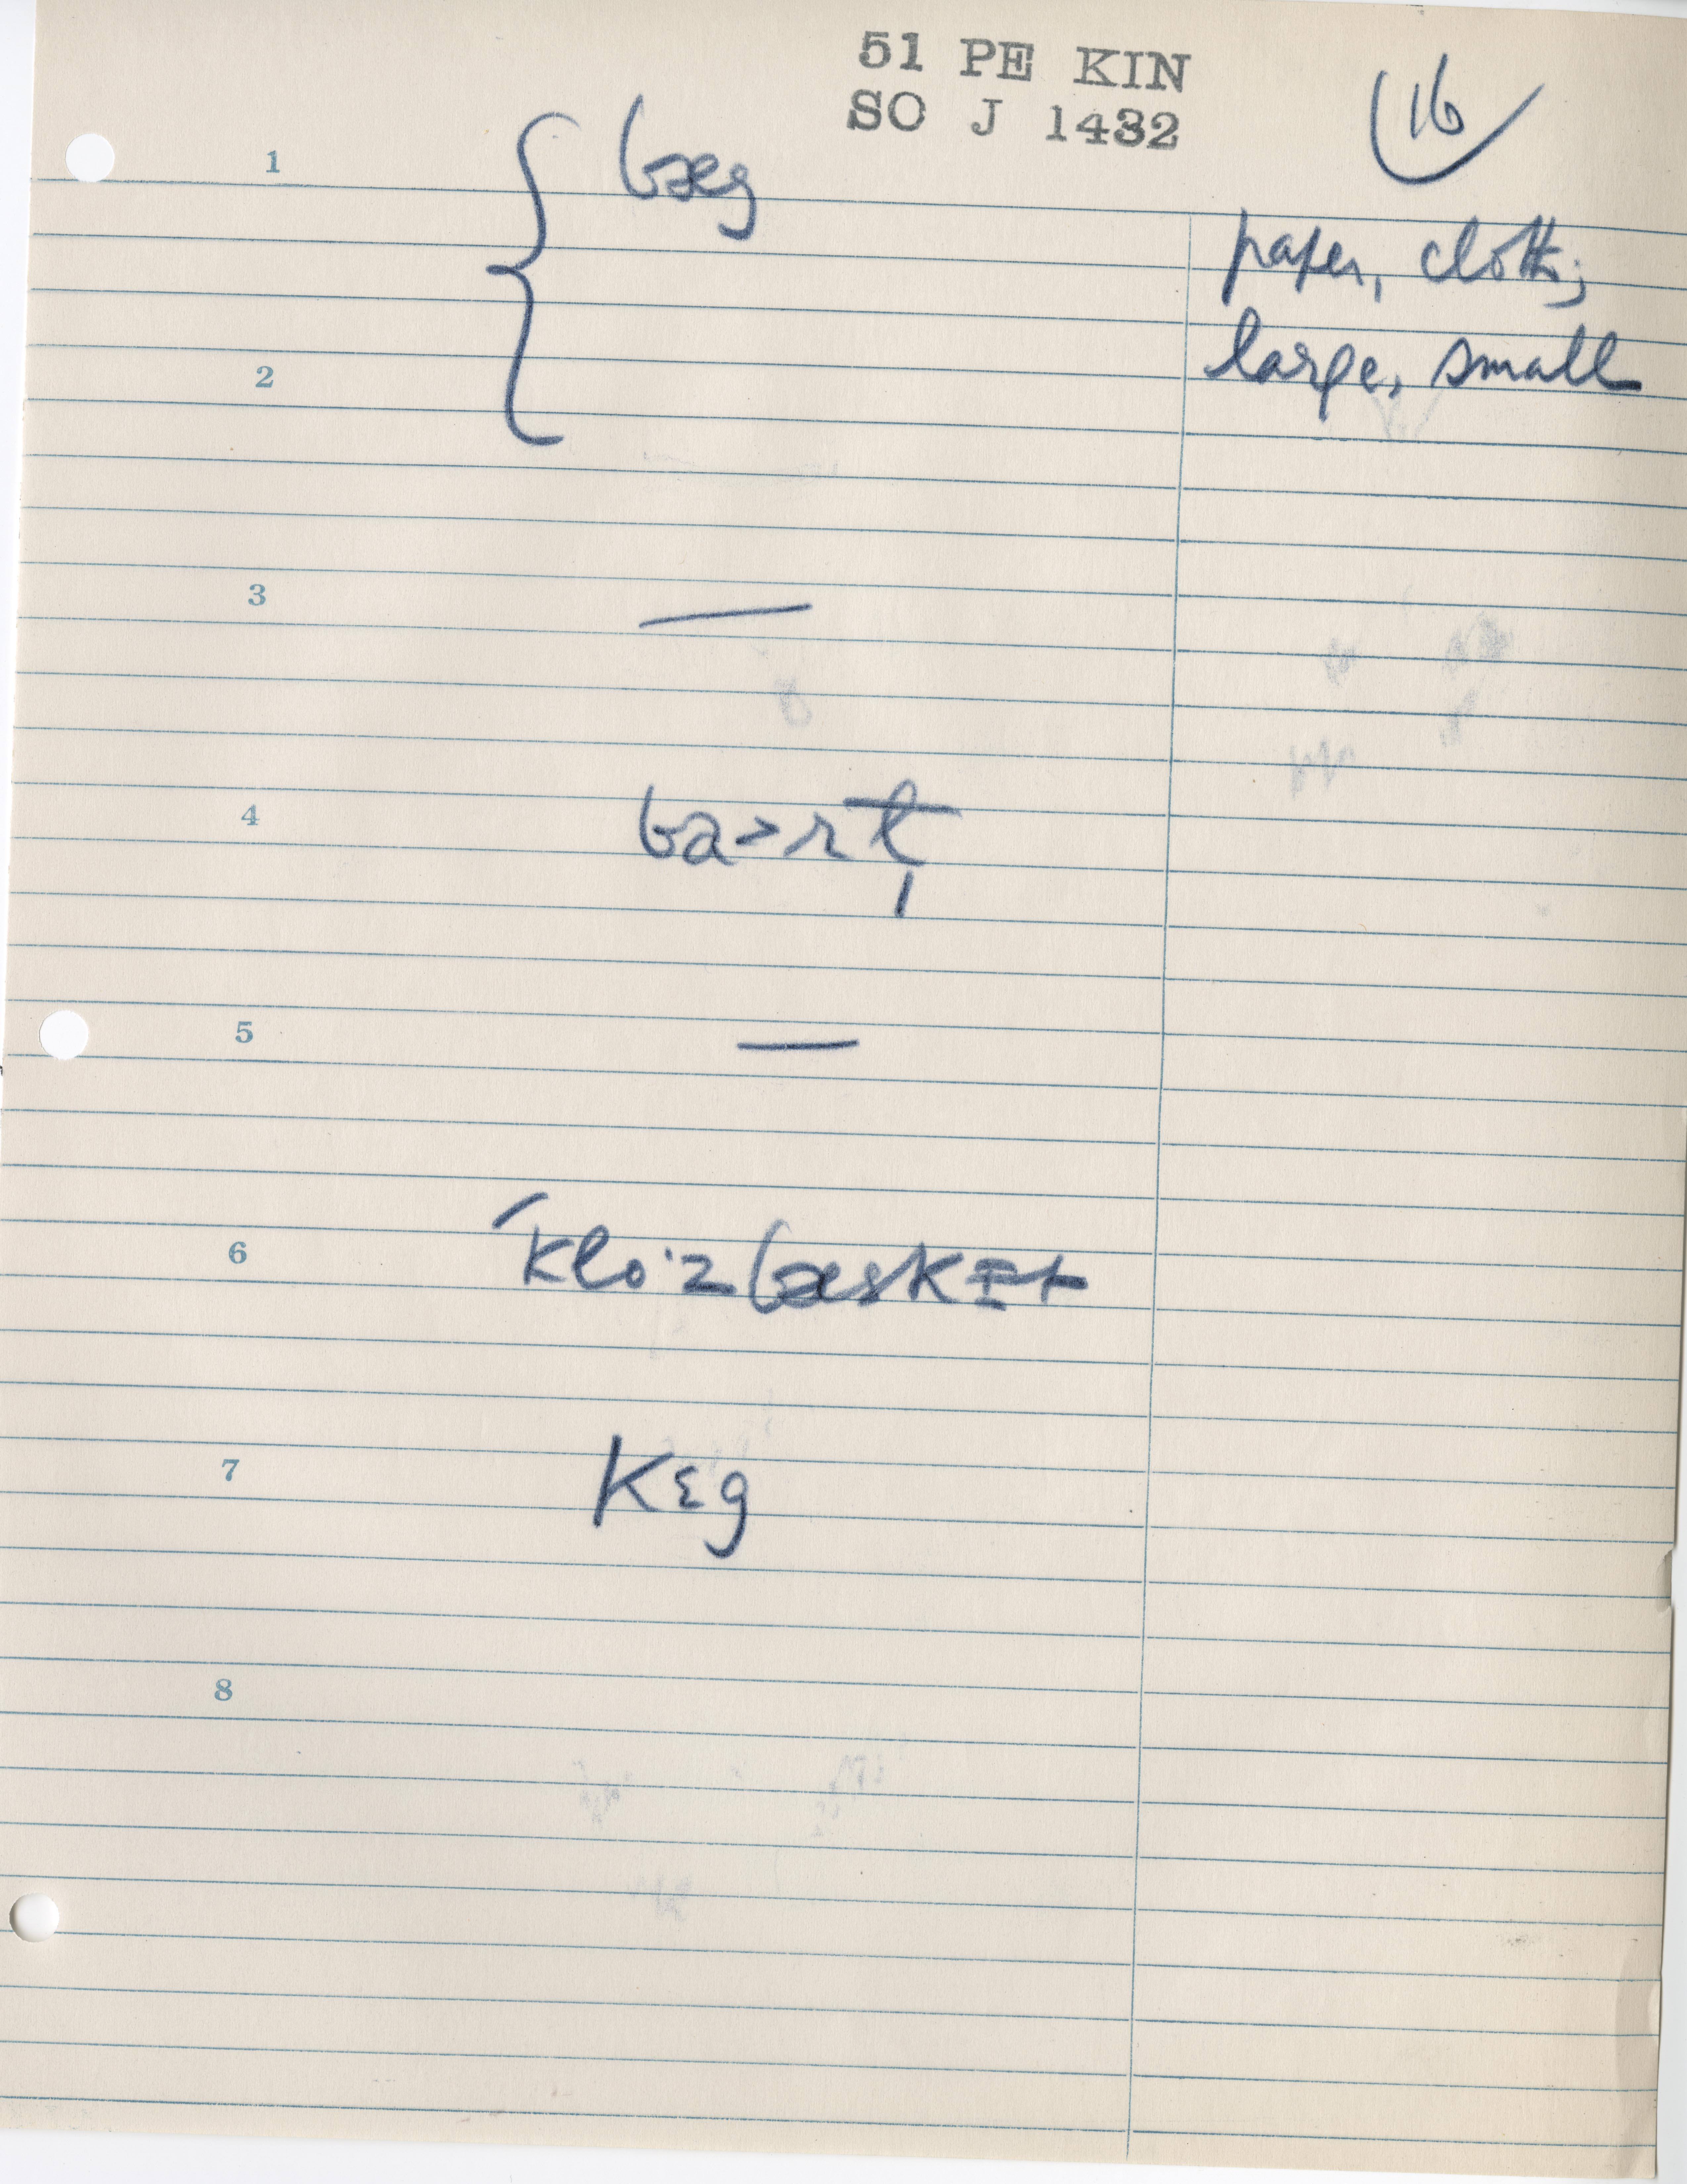 51 PE KIN
SO J 1432
16
1 bæg
paper, cloth;
2 large, small
3 —
4
5 —
6 ˊkloˑzbæskɪt
7 kɛg
8